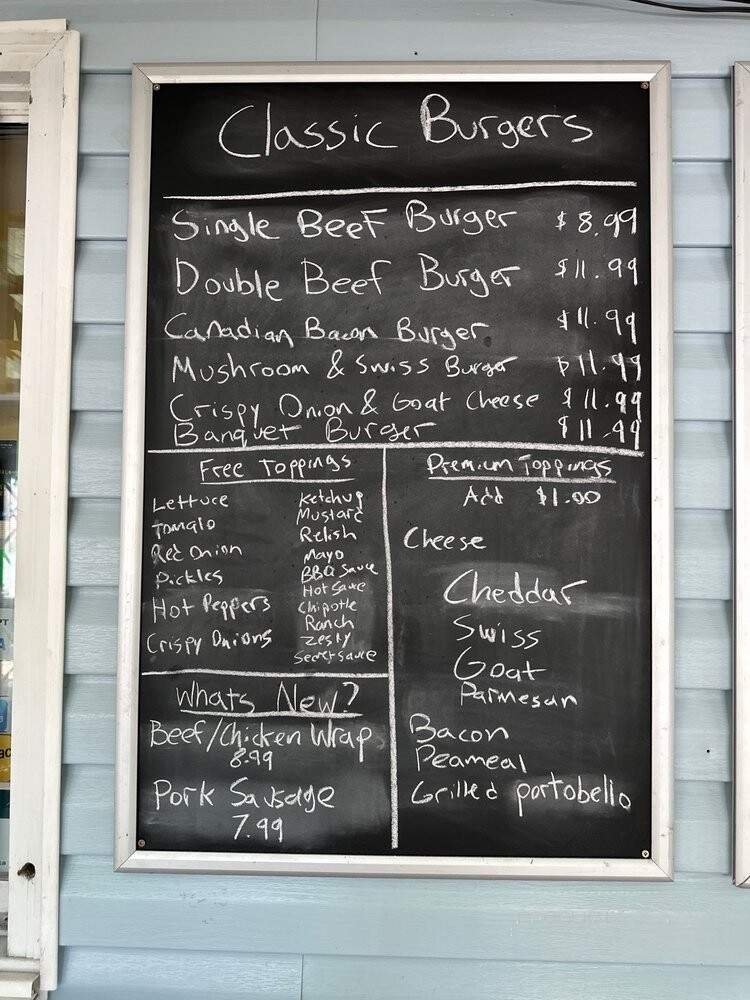 Classic Burgers
Single Beef Burger $8.99
Double Beef Burger $11.99
Canadian Bacon Burger $11.99
Mushroom & Swiss Burger $11.99
Crispy Onion & Goat Cheese $11.99
Banquet Burger $11.99
Free Toppings
Lettuce
Tomato
Red Onion
Pickles
Hot Peppers
Crispy Onions
Ketchup
Mustard
Relish
Mayo
BBQ Sauce
Hot Sauce
Chipotle
Ranch
Zesty
Secret sauce
Whats New?
Beef/Chicken Wrap
8.99
Pork Sausage
7.99
Premium Toppings
Add $1.00
Cheese
Cheddar
Swiss
Goat
Parmesan
Bacon
Peameal
Grilled portobello